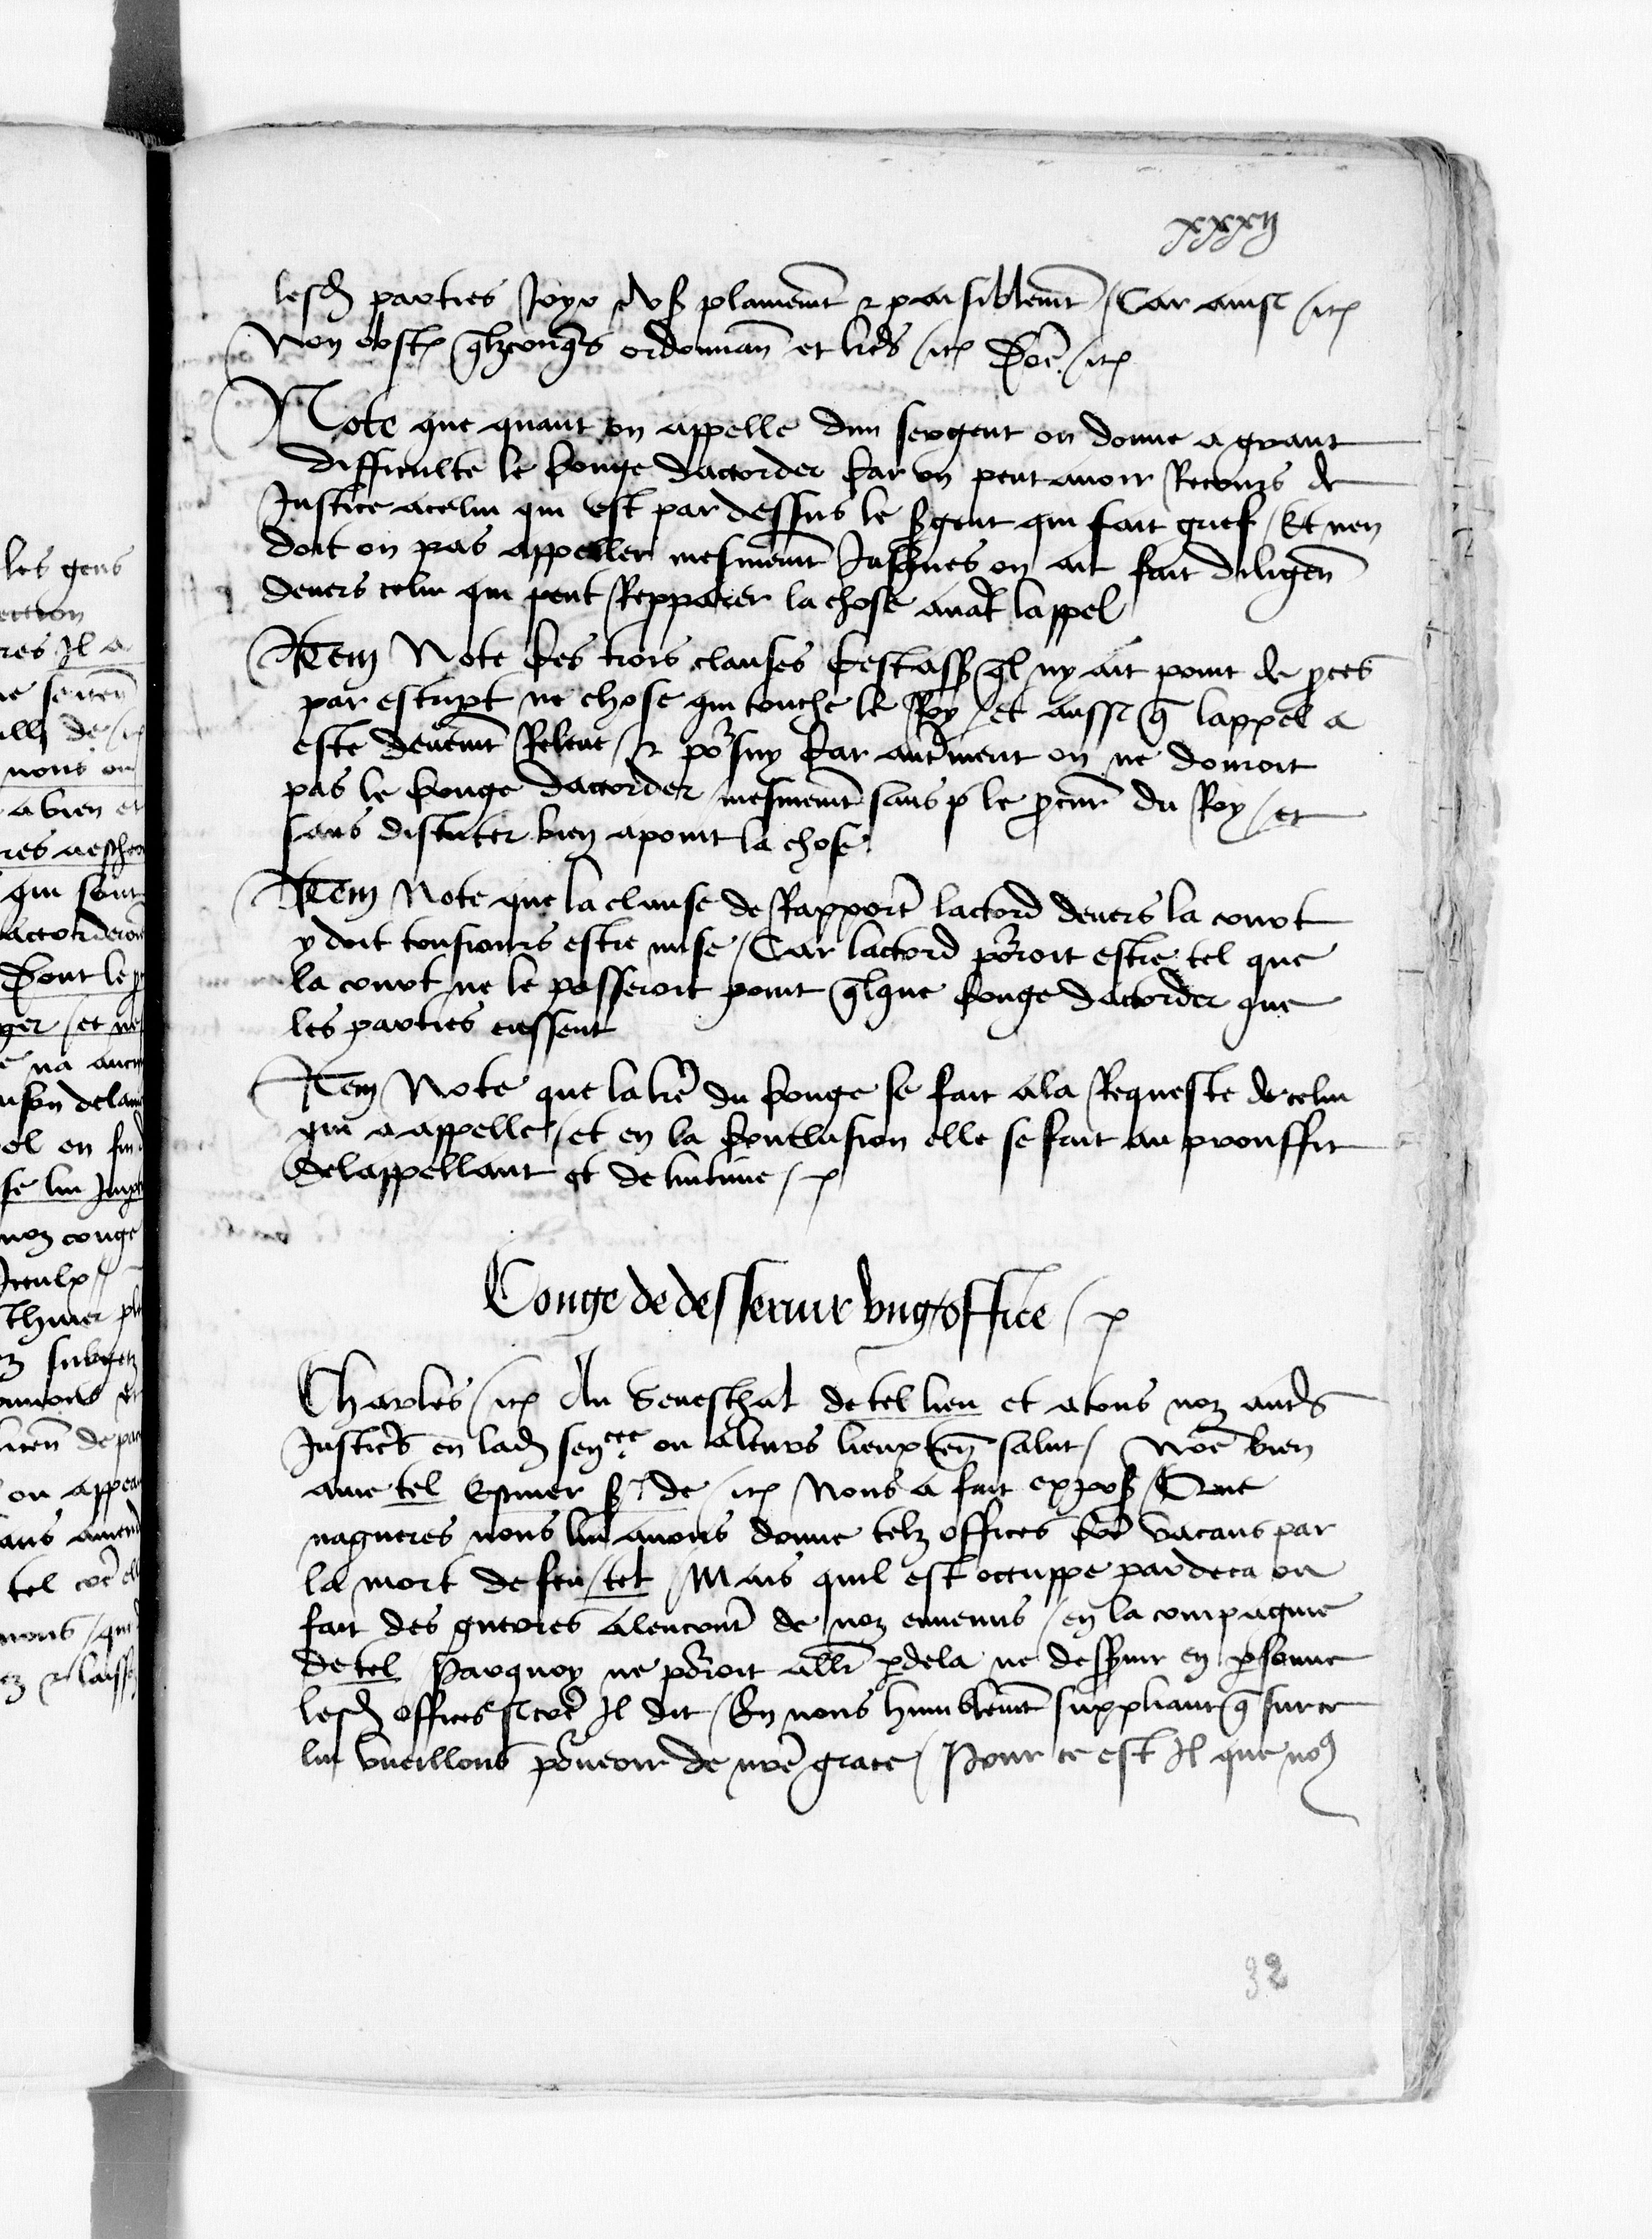 xxxij
lesd parties joyr & us plainemt & paisiblemt / Car ainsi / etc
Non obst qlzconqs ordonnan et lres / etc Doñe / etc
Note que quant on appelle dun sergent on donne a grant
difficulte le conge dacorder Car on peut avoir Recours de
Justice a celui qui est par dessus le sgent qui fait grief / Et nen
doit on pas appeller mesmemt Jusques on ait fait diligen
devers celui qui peut Repparer la chose avat lappel
Item Note ces trois clauses Cest ass ql ny ait point de pces
par escript ne chose qui touche le Roy / et aussi q lappel a
este deuemt Releve / & porsuy Car autment on ne donroit
pas le conge dacorder / mesmemt sans p le pcur du Roy / et
sans discuter bien apoint la chose
Item Note que la clause de Rapporter lacord devers la court
y doit tousiours estre mise / Car lacord porroit estre tel que
la court ne le passeroit point qlque conge dacorder que
les parties eussent
Item Note que la lre du conge se fait ala Requeste de celui
qui a appelle / et en la conclusion elle se fait au prouffit
delappellant et de lintime /
Conge de desservir ung office /
Charles / etc Au Seneschal de tel lieu et atous noz auts
Justices en lad sencee ou aleurs lieuxten salut / Nre bien
ame tel Escuier sr de / etc Nous a fait expos / Que
nagueres nous lui avons donne telz offices coe vacans par
la mort de feu / tel / Mais quil est occuppe pardeca ou
fait des guerres alencont de noz ennemis / en la compagnie
de tel Parquoy ne porroit aller pdela ne desservir en psonne
lesd offices sicoe Il dit / En nous humblemt suppliant q sur ce
lui vueillons porveoir de nre grace / Pour ce est Il que no9
32